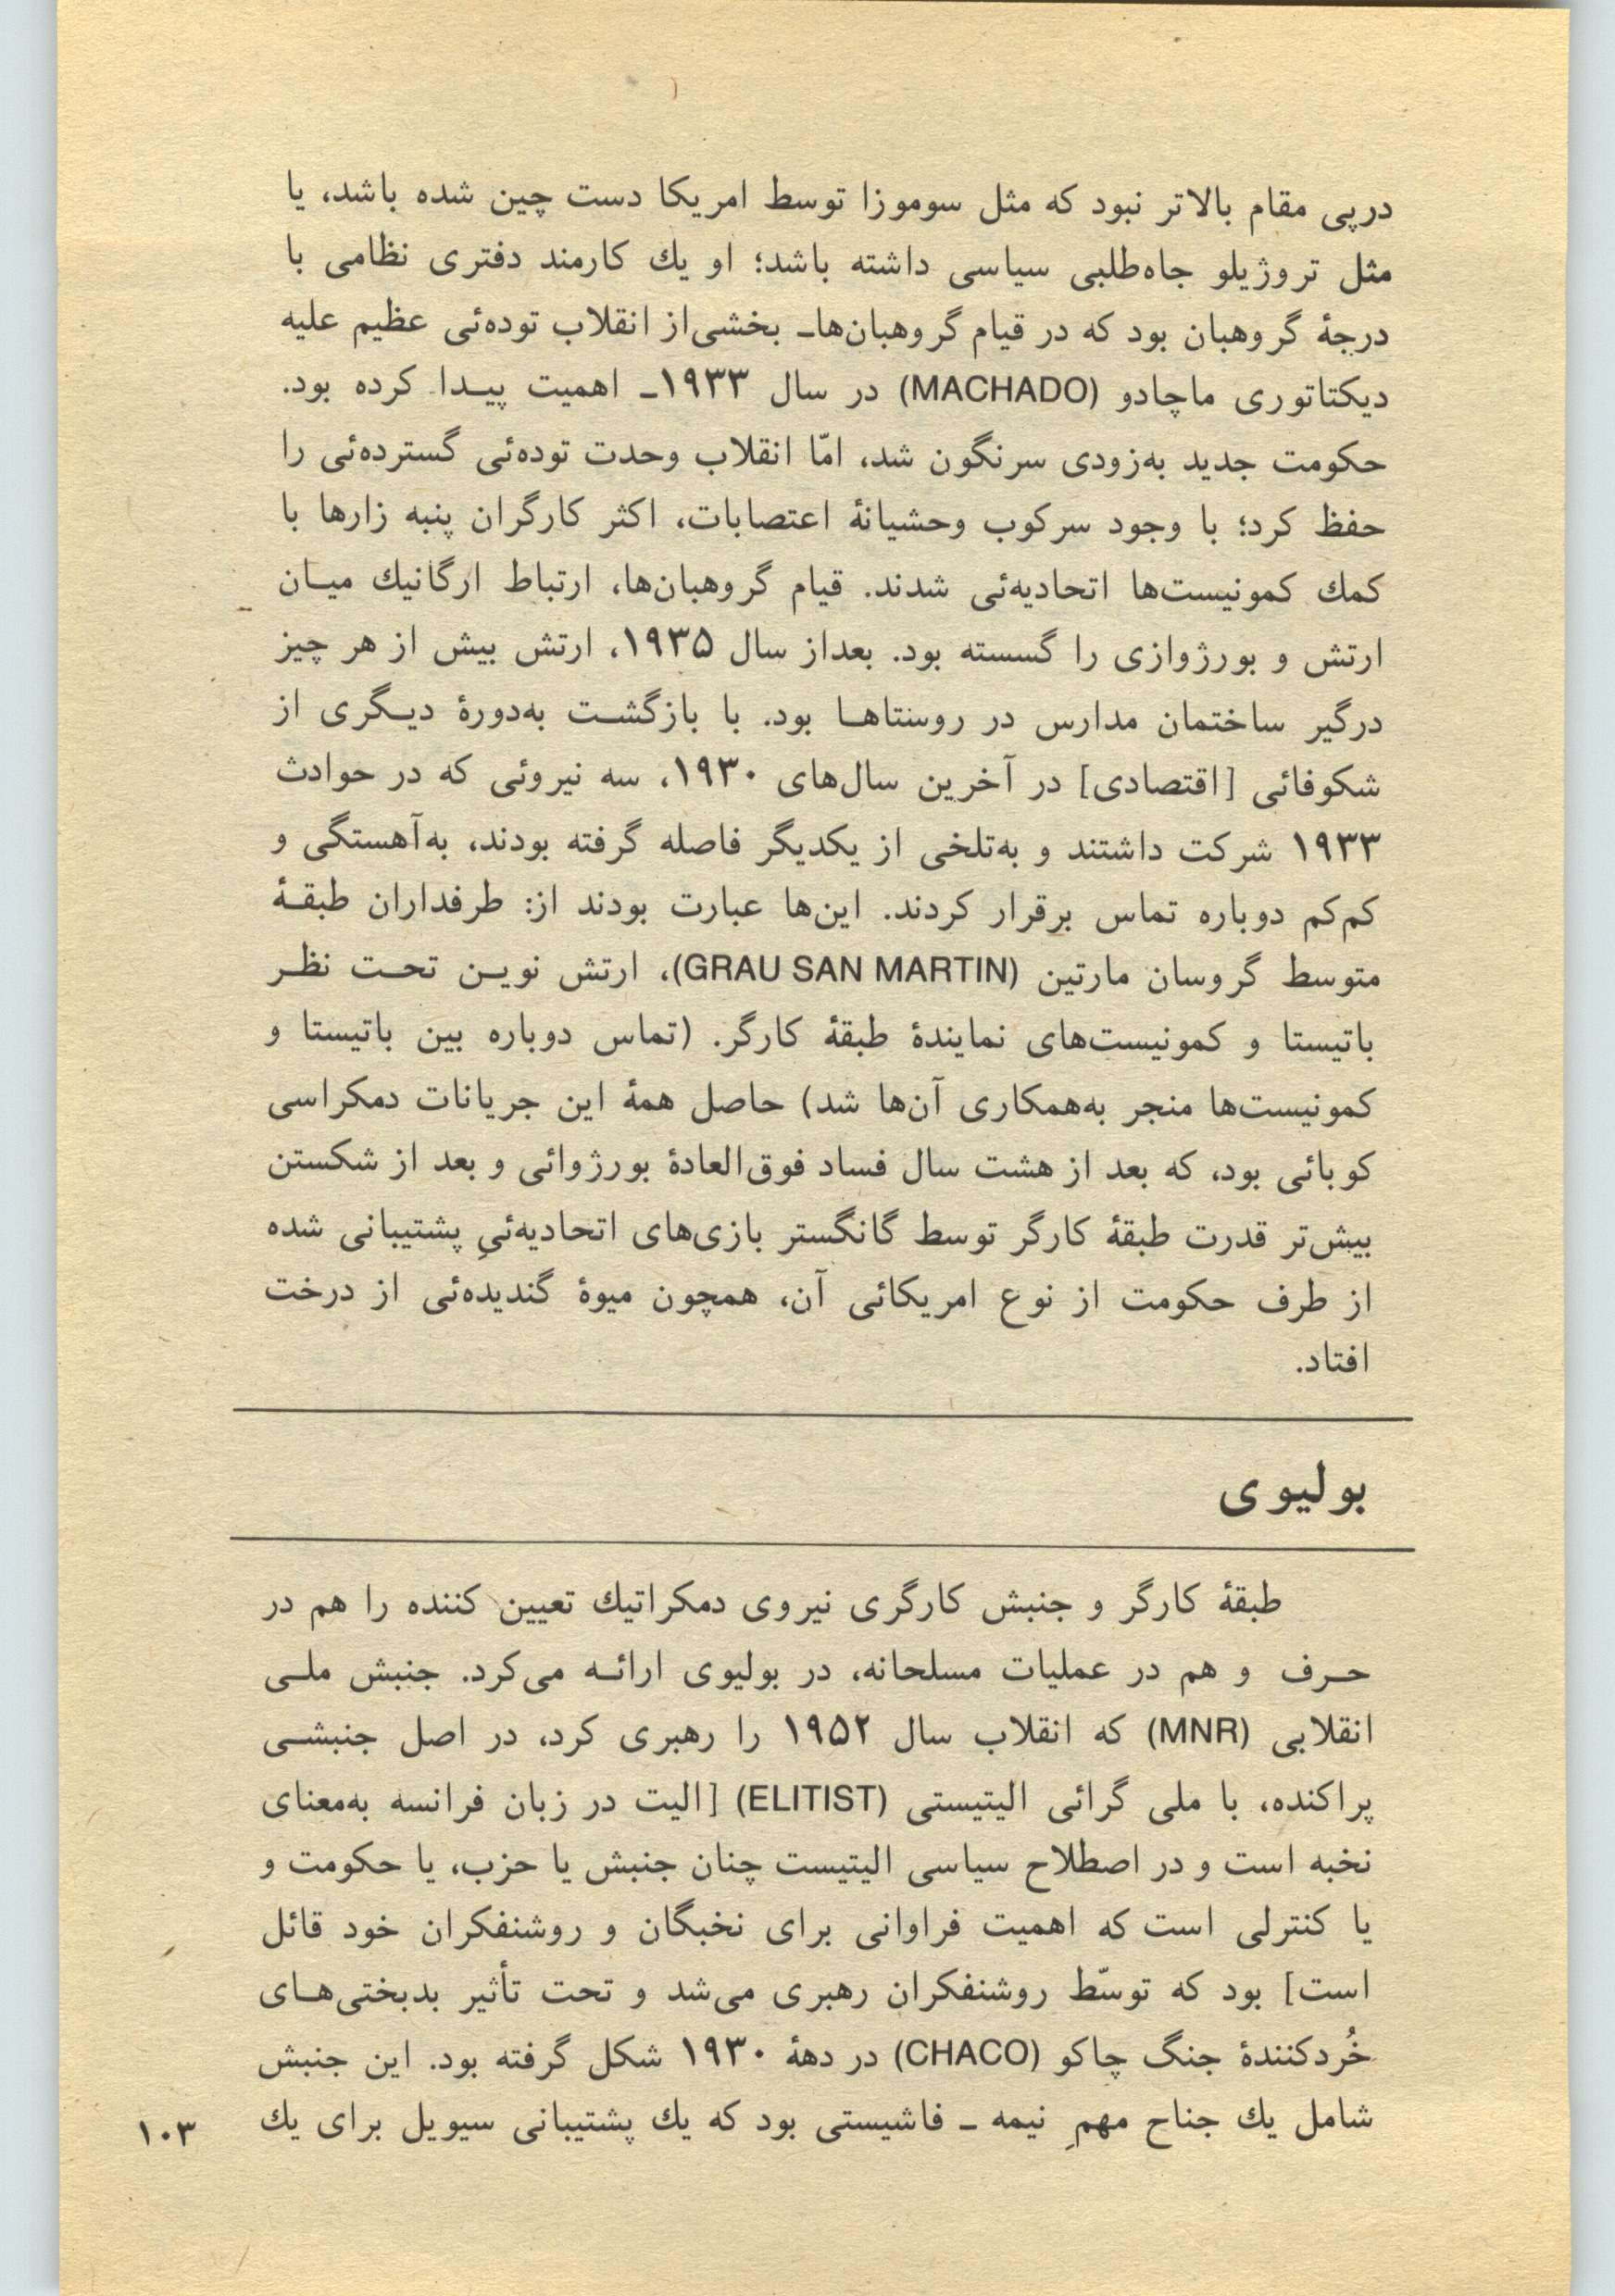 درپی مقام بالاتر نبود که مثل سوموزا توسط امریکا دست چین شده باشد، یا
مثل تروژیلو جاه‌طلبی سیاسی داشته باشد؛ او یك کارمند دفتری نظامی با
درجهٔ گروهبان بود که در قیام گروهبان‌ها۔ بخشی‌از انقلاب توده‌ئی عظیم علیه
دیکتاتوری ماچادو (MACHADO) در سال ۱۹۳۳ـ اهمیت پیـدا کرده بود.
حکومت جدید به‌زودی سرنگون شد، امّا انقلاب وحدت توده‌ئی گسترده‌ئی را
حفظ کرد؛ با وجود سرکوب وحشیانهٔ اعتصابات، اکثر کارگران پنبه زارها با
کمك کمونیست‌ها اتحادیه‌ئی شدند. قیام گروهبان‌ها، ارتباط ارگانیك میـان
ارتش و بورژوازی را گسسته بود. بعداز سال ۱۹۳۵، ارتش بیش از هر چیز
درگیر ساختمان مدارس در روستاهـا بود. با بازگشـت به‌دورهٔ دیـگری از
شکوفائی [اقتصادی] در آخرین سال‌های ۱۹۳۰، سه نیروئی که در حوادث
۱۹۳۳ شرکت داشتند و به‌تلخی از یکدیگر فاصله گرفته بودند، به‌آهستگی و
کم‌کم دوباره تماس برقرار کردند. این‌ها عبارت بودند از: طرفداران طبقـهٔ
متوسط گروسان مارتین (GRAU SAN MARTIN)، ارتش نویـن تحـت نظـر
باتیستا و کمونیست‌های نمایندهٔ طبقهٔ کارگر. (تماس دوباره بین باتیستا و
کمونیست‌ها منجر به‌همکاری آن‌ها شد) حاصل همهٔ این جریانات دمکراسی
کوبائی بود، که بعد از هشت سال فساد فوق‌العادهٔ بورژوائی و بعد از شکستن
بیش‌تر قدرت طبقهٔ کارگر توسط گانگستر بازی‌های اتحادیه‌ئیِ پشتیبانی شده
از طرف حکومت از نوع امریکائی آن، همچون میوهٔ گندیده‌ئی از درخت
افتاد.
بولیوی
طبقهٔ کارگر و جنبش کارگری نیروی دمکراتیك تعیین کننده را هم در
حـرف و هم در عملیات مسلحانه، در بولیوی ارائـه می‌کرد. جنبش ملـی
انقلابی (MNR) که انقلاب سال ۱۹۵۲ را رهبری کرد، در اصل جنبشـی
پراکنده، با ملی گرائی الیتیستی (ELITIST) [الیت در زبان فرانسه به‌معنای
نخبه است و در اصطلاح سیاسی الیتیست چنان جنبش یا حزب، یا حکومت و
یا کنترلی است که اهمیت فراوانی برای نخبگان و روشنفکران خود قائل
است] بود که توسّط روشنفکران رهبری می‌شد و تحت تأثیر بدبختی‌هـای
خُردکنندهٔ جنگ چاکو (CHACO) در دههٔ ۱۹۳۰ شکل گرفته بود. این جنبش
شامل یك جناح مهمِ نیمه ـ فاشیستی بود که یك پشتیبانی سیویل برای یك
۱۰۳